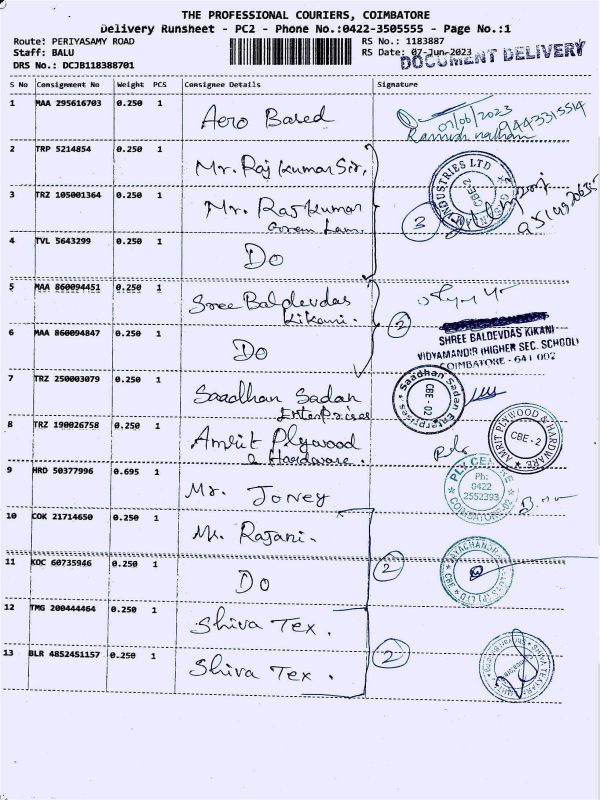 THE PROFESSIONAL COURIERS, COIMBATORE
Delivery Runsheet - PC2 - Phone No.:0422-3505555 - Page No.:1
Route: PERIYASAMY ROAD RS No.: 1183887
Staff: BALU RS Date: 07-Jun-2023
DOCUMENT DELIVERY
DRS No.: DCJB118388701
S No Consignment No Weight PCS Consignee Details Signature
1 MAA 295616703 0.250 1 Aero Based
07/06/2023
9443315514
2 TRP 5214854 0.250 1 Mr. Raj kumar Sir,
INDUSTRIES LTD
CBE-2
3 TRZ 105001364 0.250 1 Mr. Rajkumar
3
4 TVL 5643299 0.250 1 Do
5 MAA 860094451 0.250 1 Sree Baldevdas
Kikani.
2
SHREE BALDEVDAS KIKANI
VIDYAMANDIR (HIGHER SEC. SCHOOL)
COIMBATORE - 641 002
6 MAA 860094847 0.250 1 Do
7 TRZ 250003079 0.250 1 Saadhan Sadan
Enterprises
Saadhan Sadan Enterprises
CBE - 02
8 TRZ 190026758 0.250 1 Amrit Plywood
& Hardware.
AMRIT PLYWOOD & HARDWARE
CBE - 2
9 HRD 50377996 0.695 1 Mr. Joney
PLY CENTRE
Ph:
0422
2552393
COIMBATORE-02
10 COK 21714650 0.250 1 Mr. Rajani.
11 KOC 60735946 0.250 1 Do
2
12 TMG 200444464 0.250 1 Shiva Tex.
13 BLR 4852451157 0.250 1 Shiva Tex.
2